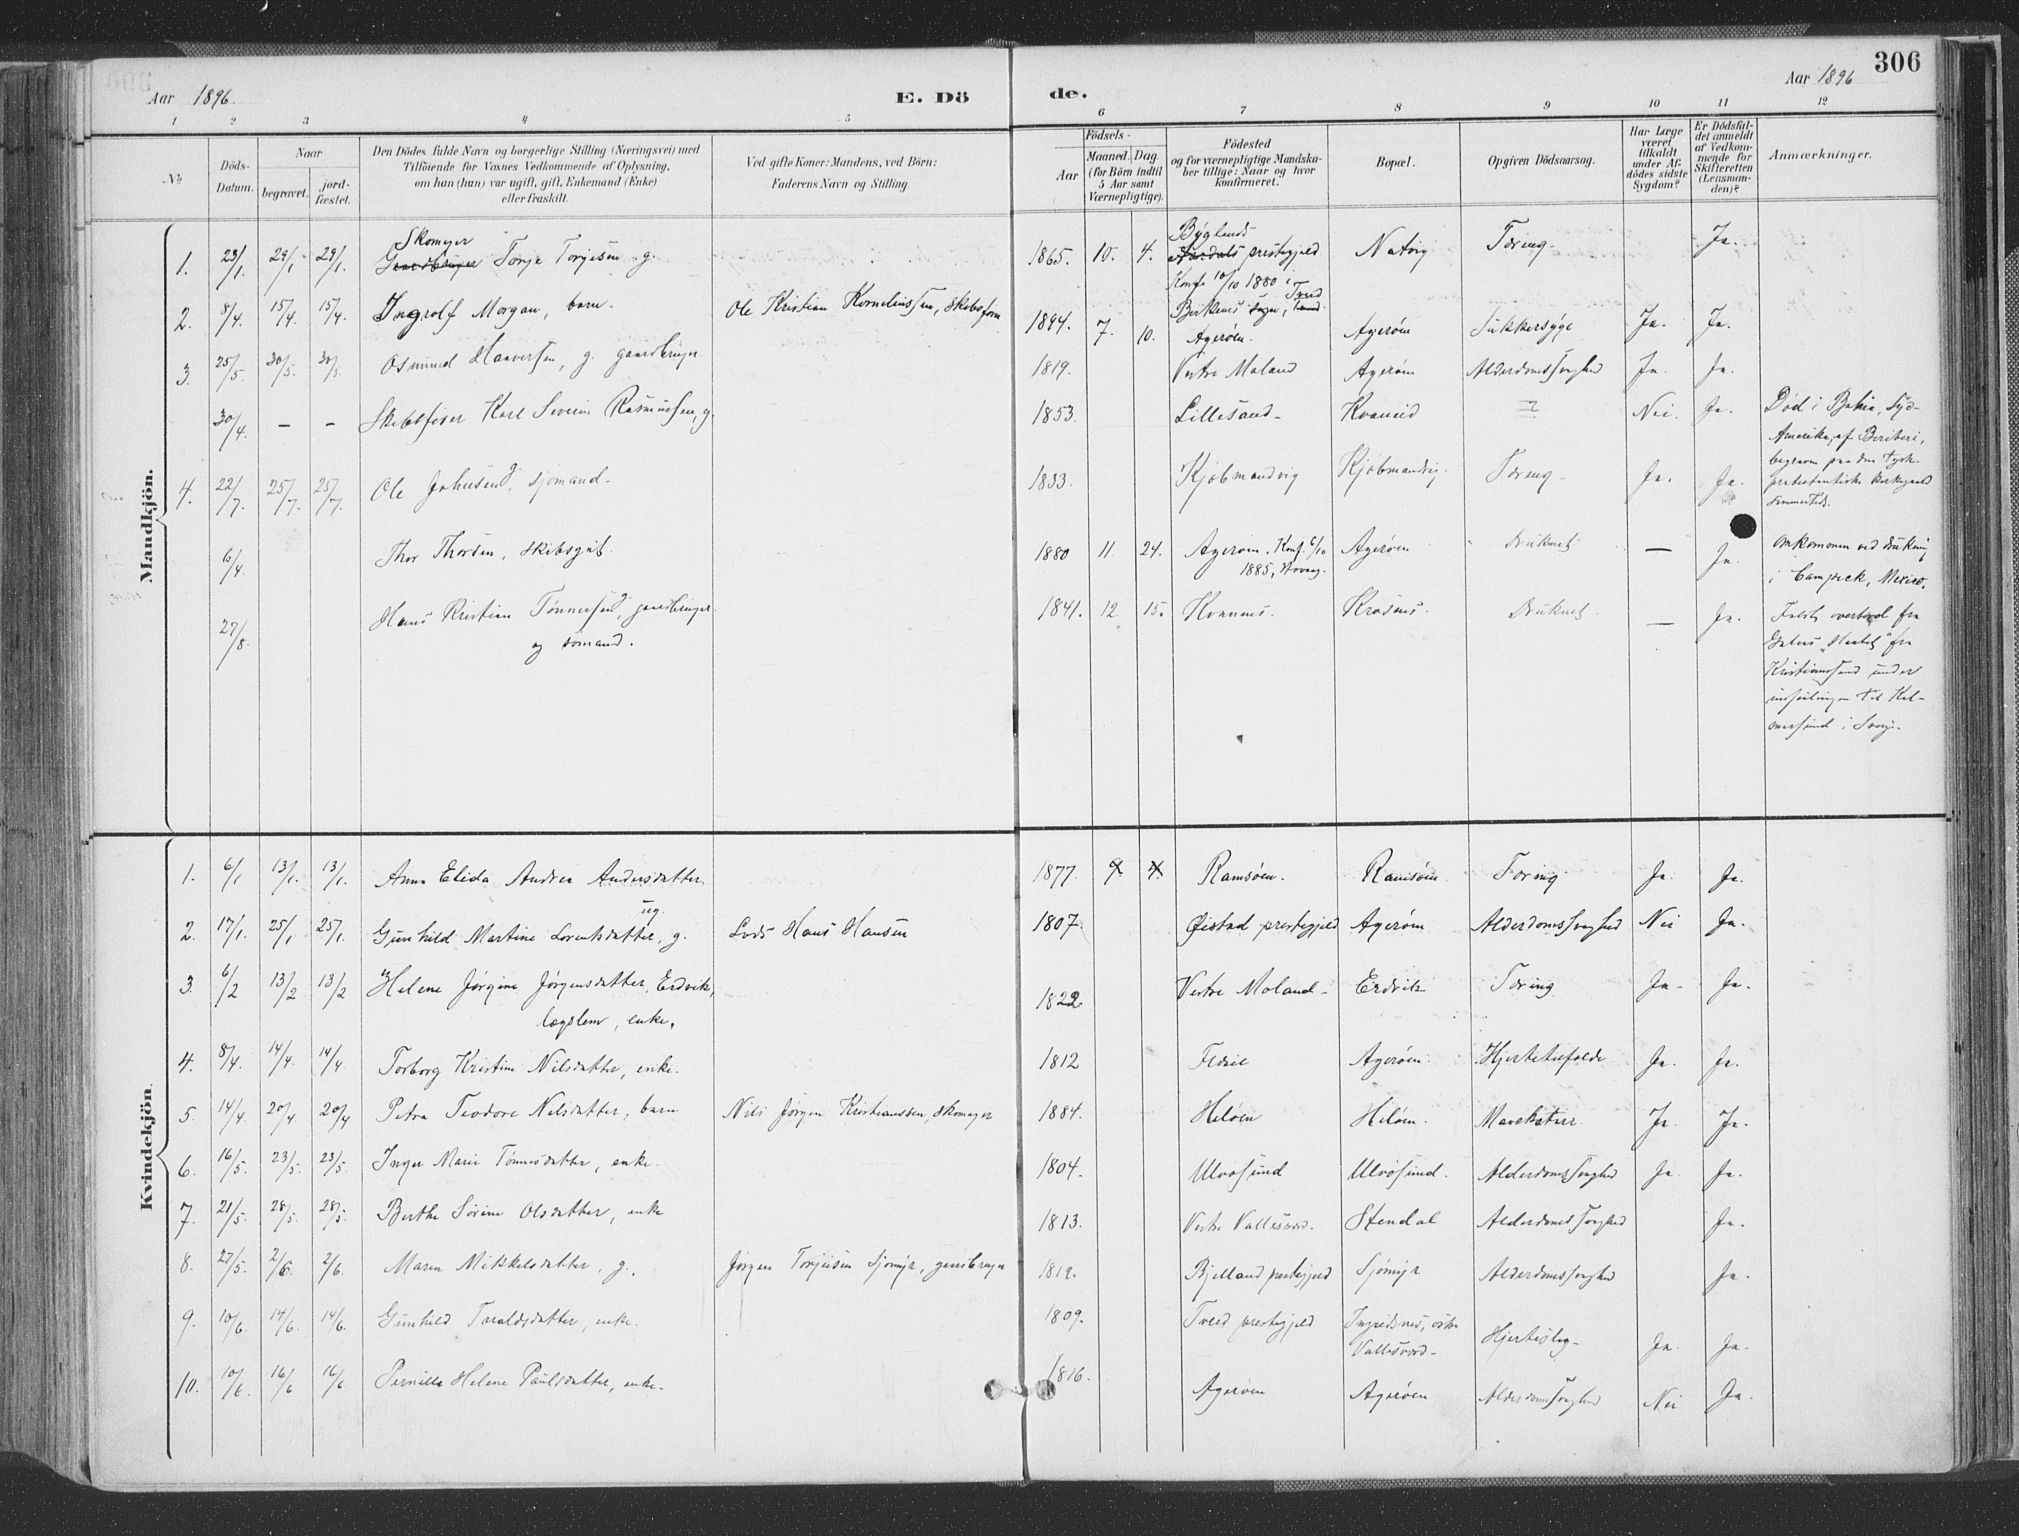 306
Aar 1896.
E. Dö
de.
Aar 1896
1 2 3 4 5 6 7 8 9 10 11 12
№
Döds-
Datum.
Naar
begravet.
jord-
fæstet.
Den Dödes fulde Navn og borgerlige Stilling (Næringsvei) med
Tilföiende for Voxnes Vedkommende af Oplysning,
om han (hun) var ugift, gift, Enkemand (Enke)
eller fraskilt.
Ved gifte Koner: Mandens, ved Börn:
Faderens Navn og Stilling.
Födsels-
Aar
Maaned. Dag.
(for Börn indtil
5 Aar samt
Værnepligtige).
Födested
og for værnepligtige Mandska-
ber tillige: Naar og hvor
konfirmeret.
Bopæl.
Opgiven Dödsaarsag.
Har Læge
været
tilkaldt
under Af-
dödes sidste
Sygdom?
Er Dödsfal-
det anmeldt
af Vedkom-
mende for
Skifteretten
(Lensman-
den)?
Anmærkninger.
Mandkjön.
1. 23/1. 29/1 29/1. Skomager
Gaardbruger Torje Torjesen. g. 1865. 10. 4. Byglands
prestegjeld
Konf. 10/10 1880 i
Birkenes sogn, Tveid Tæring. Ja.
2. 8/4. 15/4. 15/4. Ingvolf Morgan, barn. Ole Kristian Kornelinssen, skibsfører 1894. 7. 10. Agerøen. Agerøen Sukkersyge Ja. Ja.
3. 25/5. 30/5. 30/5. Osmund Haaversen, g. gaardbruger 1819. Vestre Moland Agerøen Alderdomssvaghed Ja. Ja.
30/4. – – Skibsfører Karl Severin Rasmussen, g. 1853. Lillesand Nei. Ja. Död i Bahia, Syd-
Amerika, af Beriberi,
begraven paa den tysk-
protestantiske kirkegaard
sammesteds.
4. 22/7. 25/7. 25/7. Ole Johnsen, sjømand 1833. Kjøbmandvig Kjøbmandvig. Tæring Ja. Ja.
6/4. Thor Thorsen, skibsgut. 1880 11. 24. Agerøen. Konf. 6/10
1885, Agerøen Druknet – Ja. Omkommen ved drukning
i Mexico.
27/8. Hans Kristian Tønnessen, gaardbruger
og sømand. 1841. 12. 15. Druknet. – Ja. Faldt overbord fra
fra
Kristianssand under
indseilingen til Kal-
marsund i Sverige.
Kvindekjön.
1. 6/1 13/1. 13/1. Anna Elida Andrea Andersdatter 1877. Ramsøen. Ramsøen Tæring Ja. Ja.
ug.
2. 17/1. 25/1 25/1. Gunhild Martine Lorentsdatter, g. Lods Hans Hansen 1807. Øistad prestegjeld Agerøen Alderdomssvaghed Nei Ja.
3. 6/2 13/2 13/2 Helene Jørgine Jørgensdatter, Eidvik,
lægslem, enke. 1822 Vestre Moland Eidvik Tæring Ja. Ja.
4. 8/4. 14/4. 14/4 Torborg Kristine Nilsdatter, enke. 1812 Agerøen. Ja. Ja.
5. 14/4 20/4. 20/4 Petra Teodore Nilsdatter, barn Nils Jørgen Kristianssen, skomager 1884. Heløen Heløen. Mavekatarr. Ja. Ja.
6. 16/5. 23/5. 23/5. Inger Marie Tønnesdatter, enke. 1804. Ulvøsund Ulvøsund. Alderdomssvaghed Ja. Ja.
7. 21/5. 28/5. 28/5. Berthe Sørine Olsdatter, enke 1813. Vestre Vallesværd. Stendal Alderdomssvaghed Ja.
8. 27/5. 2/6. 2/6. Maren Mikkelsdatter, g. Jørgen Torjusen Sjømyr, gaardbruger 1812. Bjelland prestegjeld Sjømyr Alderdomssvaghed Ja.
9. 10/6 14/6. 14/6. Gunhild Taraldsdatter, enke. 1809. Tveid prestegjeld Ingridsnes, østre
Vallesværd Ja. Ja.
10. 10/6. 16/6 16/6 Pernille Helene Paulsdatter, enke. 1816. Agerøen Agerøen Alderdomssvaghed Nei Ja.